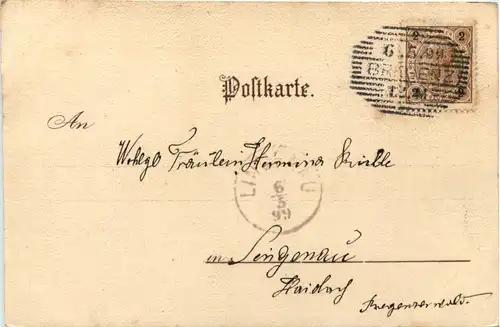 2 2
6/5/99
BREGENZ
Postkarte.
An
Wohlgb Fräulein Hermina
LINGENAU
6
5
99
in Lingenau
Haidach
Bregenzerwald.